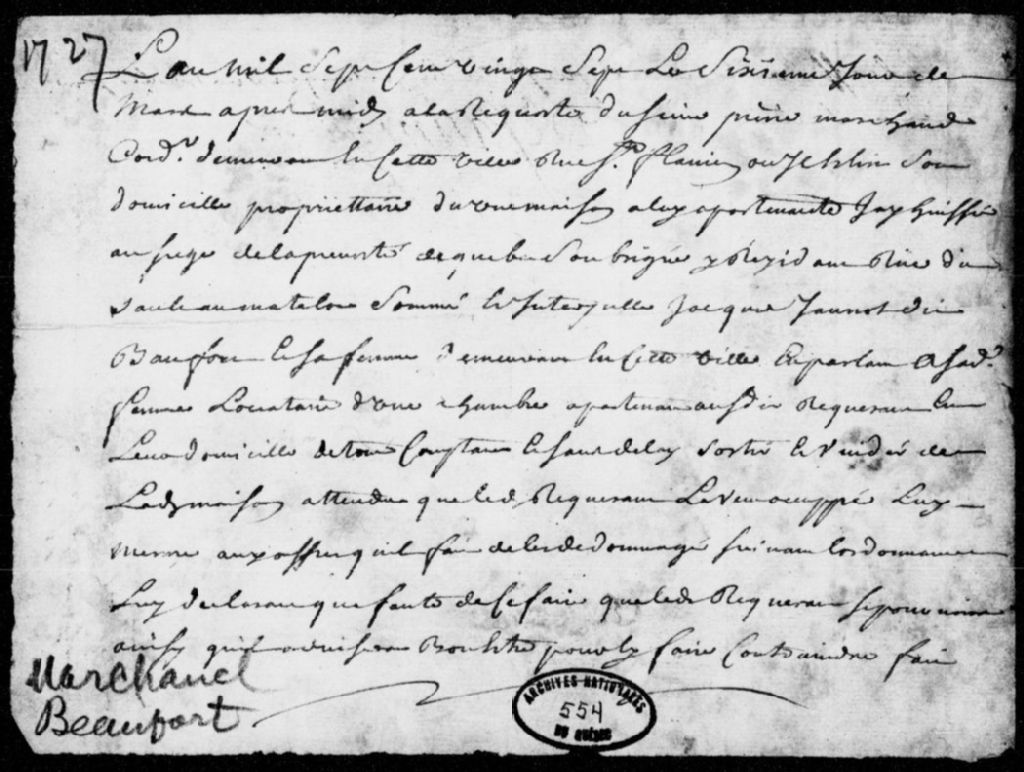 1727
L'an mil Sept Cent vingt Sept Le Sixieme Jour de
Mars apres midy a la Requeste du Sieur pierre marchand
Cord.r demeurant En Cette ville Rue St. flavien ou Il Eslit Son
domicille propriettaire d'une maison a luy apartenante Jay huissier
au siege de la prevosté de quebec Soubsigné y Rezidant Rüe du
Sault au matelot Sommé et Interpellé Jacque Jannot dit
Beaufort et sa femme demeurant En Cette ville En parlant a Sad.e
femme Locataire d'une chambre apartenant audit Requerant En
Leur domicille de tout Constant et sans delay Sortir et Vuider de
Lad. maison attendu que led. Requerant La veut occupper Luy
mesme aux offres qu'il fait de les dedommager suivant l'ordonnance
Luy declarant que faute de Ce faire que led. Requerant se pourvoira
ainsy qu'il avisera bon Estre pour les y faire Contraindre fait
Marchand
Beaufort
ARCHIVES NATIONALES
554
DU QUÉBEC